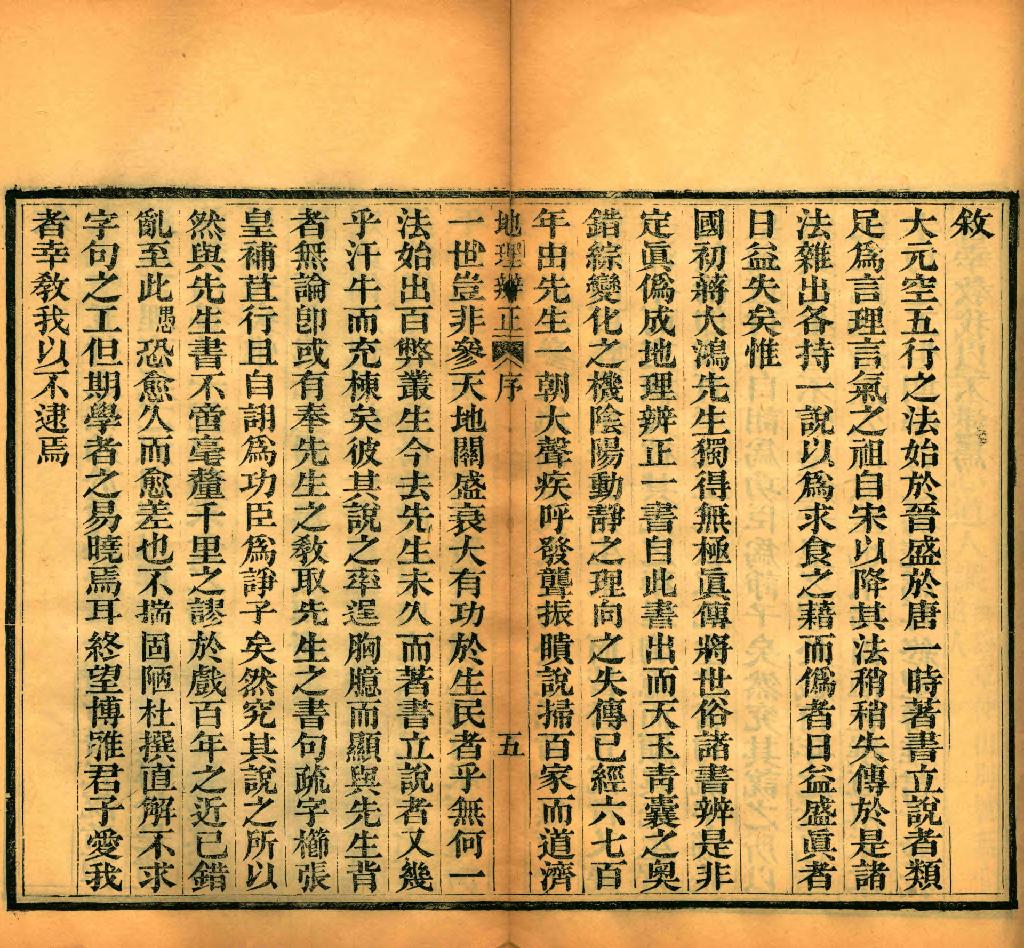 敘
大元空五行之法始於晉盛於唐一時著書立說者類
足爲言理言氣之祖自宋以降其法稍稍失傳於是諸
法雜出各持一說以爲求食之藉而僞者日益盛眞者
日益失矣惟
國初蔣大鴻先生獨得無極眞傳將世俗諸書辨是非
定眞僞成地理辨正一書自此書出而天玉靑囊之奧
錯綜變化之機陰陽動靜之理向之失傳已經六七百
年由先生一朝大聲疾呼發聾振聵說掃百家而道濟
地理辨正 序 五
一世豈非參天地關盛衰大有功於生民者乎無何一
法始出百弊叢生今去先生未久而著書立說者又幾
乎汗牛而充棟矣彼其說之率逞胸臆而顯與先生背
者無論卽或有奉先生之敎取先生之書句疏字櫛張
皇補苴行且自詡爲功臣爲諍子矣然究其說之所以
然與先生書不啻毫釐千里之謬於戲百年之近已錯
亂至此愚恐愈久而愈差也不揣固陋杜撰直解不求
字句之工但期學者之易曉焉耳終望博雅君子愛我
者幸敎我以不逮焉